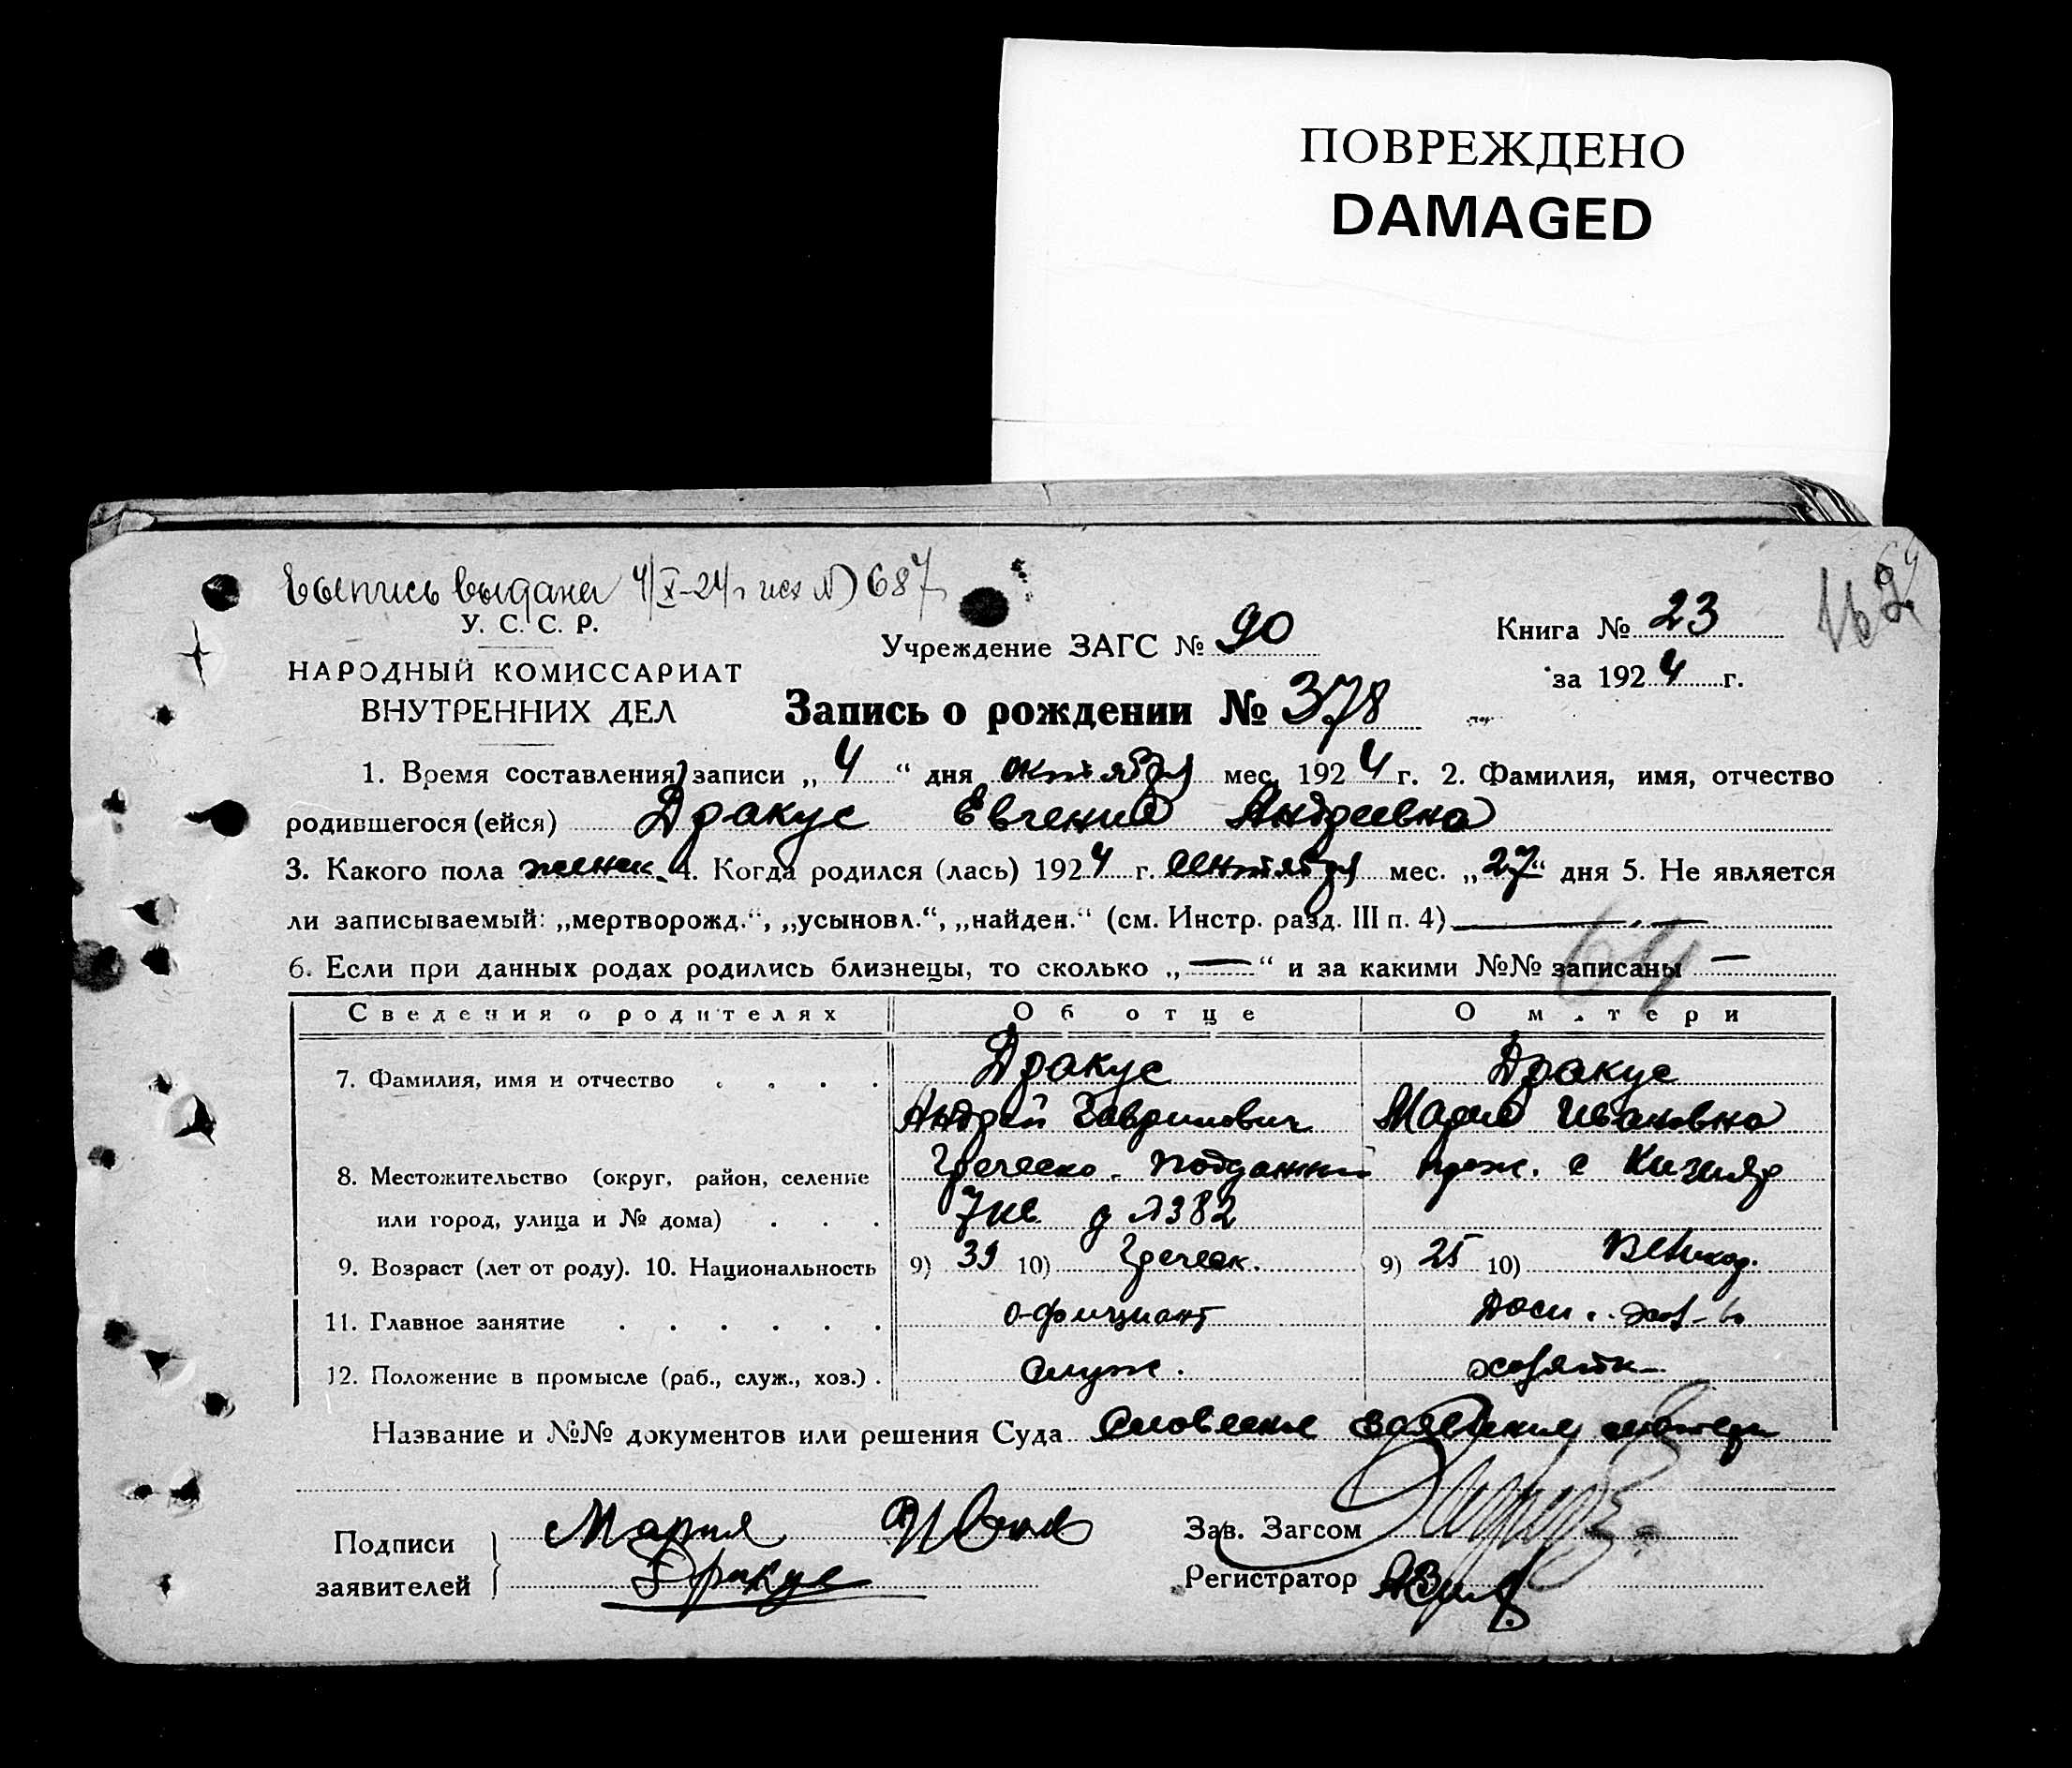 ПОВРЕЖДЕНО
DAMAGED
64
Выпись выдана 4/X-24г исх № 687
У. С. С. Р.
НАРОДНЫЙ КОМИССАРИАТ
ВНУТРЕННИХ ДЕЛ
Учреждение ЗАГС № 90
Книга № 23
за 1924 г.
Запись о рождении № 378
1. Время составления записи „4“ дня октября мес. 1924 г. 2. Фамилия, имя, отчество
родившегося (ейся) Дракус Евгения Андреевна
3. Какого пола женск. 4. Когда родился (лась) 1924 г. сентября мес. „27“ дня 5. Не является
ли записываемый: „мертворожд.“, „усыновл.“, „найден.“ (см. Инстр. разд. III п. 4) —
6. Если при данных родах родились близнецы, то сколько „—“ и за какими №№ записаны —
64
Сведения о родителях Об отце О матери
7. Фамилия, имя и отчество Дракус Дракус
Андрей Гаврилович Мария Ивановна
8. Местожительство (округ, район, селение Греческо-подданный прож. с Кизияр
или город, улица и № дома) 7 кв. д №382
9. Возраст (лет от роду). 10. Национальность 9) 39 10) Греческ. 9) 25 10) Великор.
11. Главное занятие официант Дом. хоз-во
12. Положение в промысле (раб., служ., хоз.) служ. хозяйк
Название и №№ документов или решения Суда Словесное заявление матери
Подписи заявителей Мария Иван
Дракус
Зав. Загсом
Регистратор